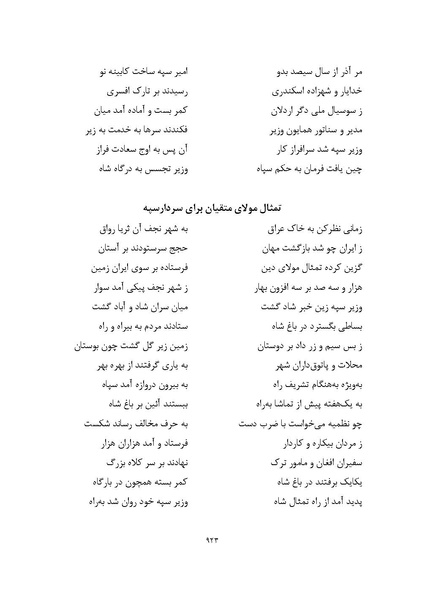 مر آذر از سال سیصد بدو امیر سپه ساخت کابینه نو
خدایار و شهزاده اسکندری رسیدند بر تارک افسری
ز سوسیال ملی دگر اردلان کمر بست و آماده آمد میان
مدیر و سناتور همایون وزیر فکندند سرها به خدمت به زیر
وزیر سپه شد سرافراز کار آن پس به اوج سعادت فراز
چنین یافت فرمان به حکم سپاه وزیر تجسس به درگاه شاه
تمثال مولای متقیان برای سردارسپه
زمانی نظرکن به خاک عراق به شهر نجف آن ثریا رواق
ز ایران چو شد بازگشت مهان حجج سرستودند بر آستان
گزین کرده تمثال مولای دین فرستاده بر سوی ایران زمین
هزار و سه صد بر سه افزون بهار ز شهر نجف پیکی آمد سوار
وزیر سپه زین خبر شاد گشت میان سران شاد و آباد گشت
بساطی بگسترد در باغ شاه ستادند مردم به بیراه و راه
ز بس سیم و زر داد بر دوستان زمین زیر گل گشت چون بوستان
محلات و پاتوق‌داران شهر به یاری گرفتند از بهره بهر
به‌ویژه به‌هنگام تشریف راه به بیرون دروازه آمد سپاه
به یک‌هفته پیش از تماشا به‌راه ببستند آئین بر باغ شاه
چو نظمیه می‌خواست با ضرب دست به حرف مخالف رساند شکست
ز مردان بیکاره و کاردار فرستاد و آمد هزاران هزار
سفیران افغان و مامور ترک نهادند بر سر کلاه بزرگ
یکایک برفتند در باغ شاه کمر بسته همچون در بارگاه
پدید آمد از راه تمثال شاه وزیر سپه خود روان شد به‌راه
۹۲۳